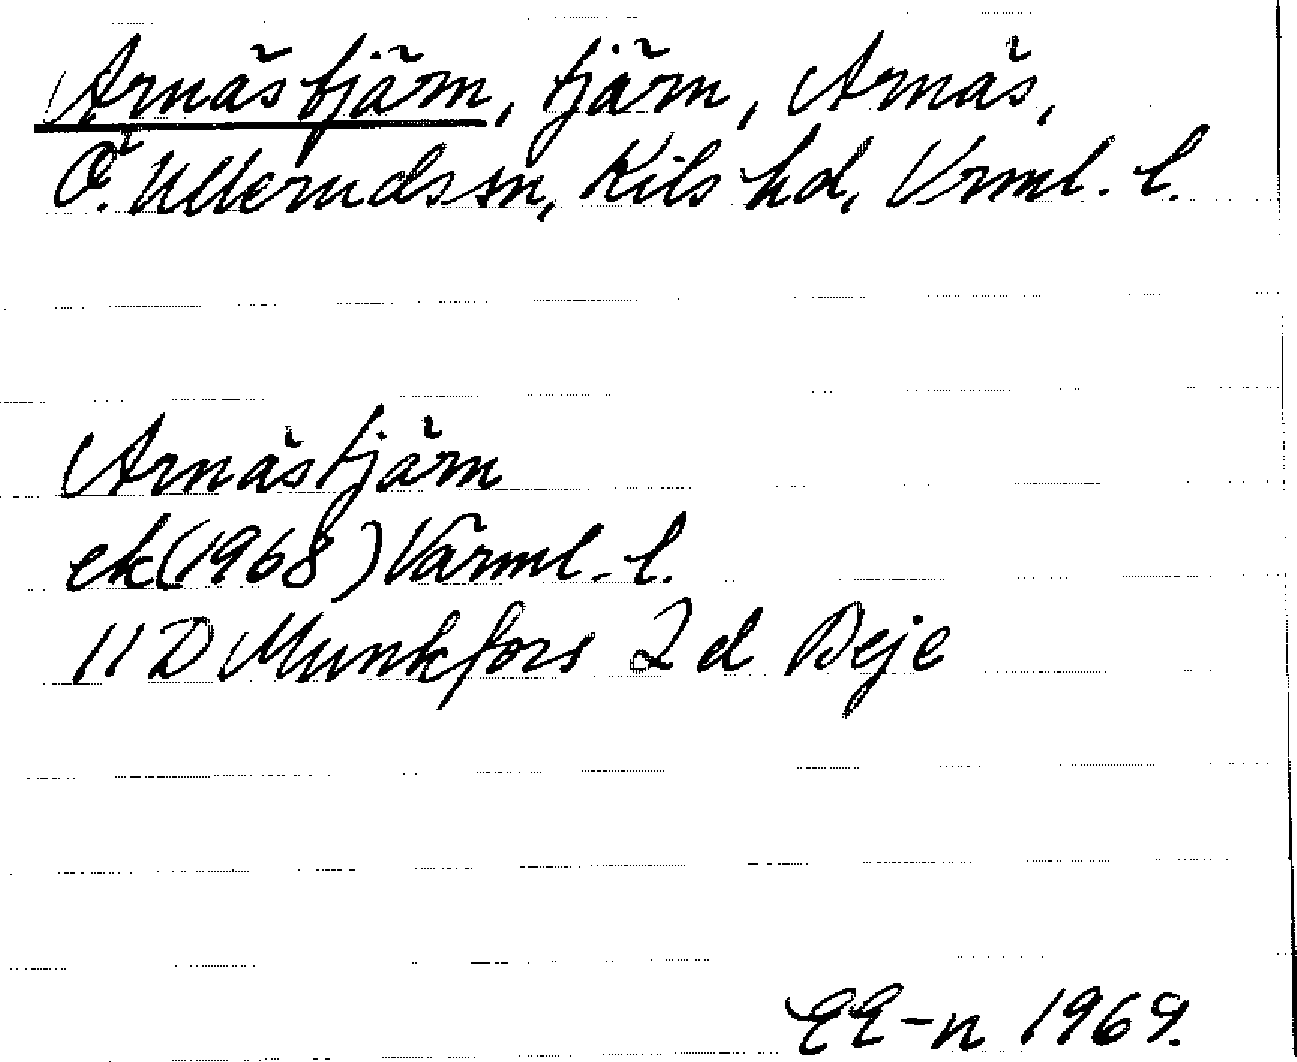 Arnästjärn, tjärn, Arnäs,
Ö. Ullerudssn, Kils hd, Vrml. l.
Arnästjärn
ek(1968) Värml. l.
11D Munkfors 2d Deje
EE-n 1969.